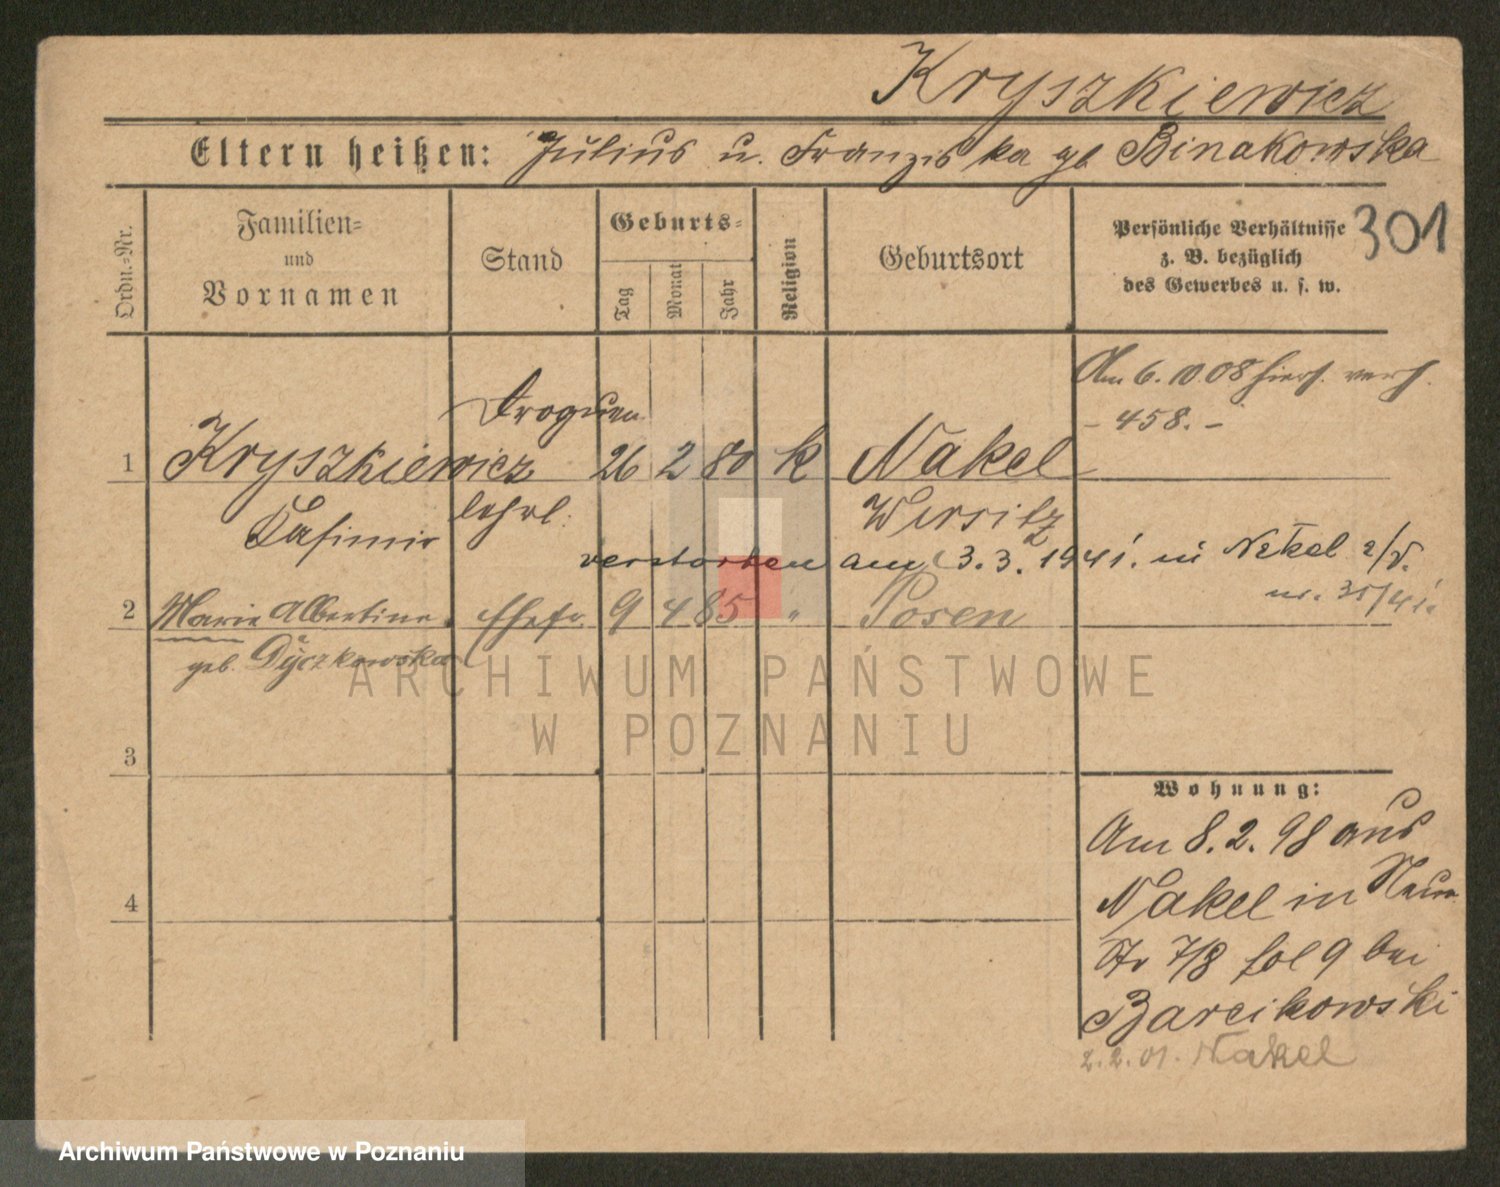 Kryszkiewicz
Eltern heißen: Julius u. Franziska gb Binakowska
Ordn.-Nr.
Familien-
und
Vornamen
Stand
Geburts-
Tag
Monat
Jahr
Religion
Geburtsort
Persönliche Verhältnisse
z. B. bezüglich
des Gewerbes u. s. w.
301
Am 6. 10 08 hiers. verh.
- 458. -
Droguen
1 Kryszkiewicz 26 2 80 k Nakel
Casimir lehrl. Wirsitz
verstorben am 3. 3. 1941. in Nakel a/N.
nr. 35/41.
2 Marie Albertine Ehefr. 9 4 85 " Posen
geb. Dyczkowska
ARCHIWUM PAŃSTWOWE
W POZNANIU
3
4
Wohnung:
Am 8. 2. 98 aus
Nakel in Neue
Str 7/8 fol 9 bei
Barcikowski
2. 2. 01. Nakel
Archiwum Państwowe w Poznaniu